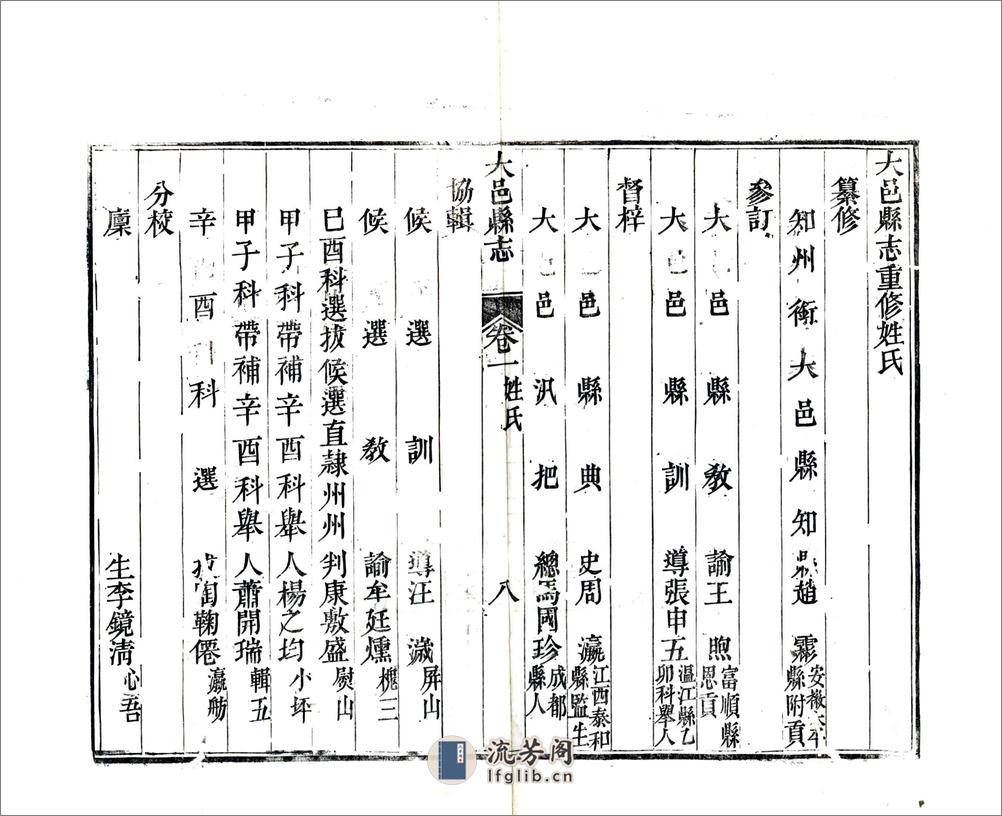 大邑縣志重修姓氏
纂修
知州銜大邑縣知 趙霦 安徽太平縣附貢
參訂
大邑縣教諭王煦 富順縣恩貢
大邑縣訓導張申五 溫江縣乙卯科舉人
督梓
大邑縣典史周瀛 江西泰和縣監生
大邑汛把總馬國珍 成都縣人
大邑縣志 卷一 姓氏 八
協輯
候選訓導汪濊 屏山
候選教諭牟廷燻 槐三
巳酉科選拔候選直隸州州判康敷盛 熨山
甲子科帶補辛酉科舉人楊之均 小坪
甲子科帶補辛酉科舉人蕭開瑞 輯五
辛酉科選 陶鞠僊 瀛舫
分校
廩生李鏡淸 心吾
流芳阁
lfglib.cn